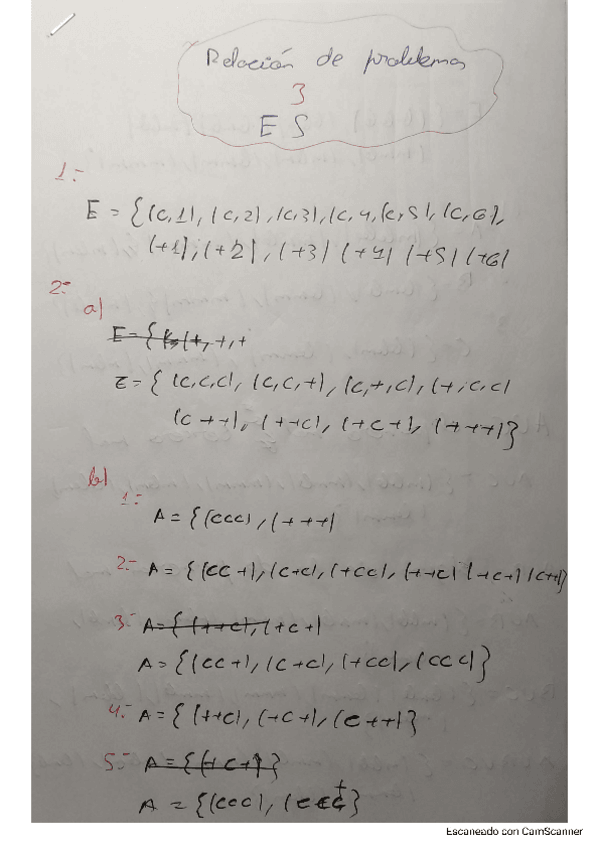 Relación de problemas
3
E S
1:-
E = {(C,1), (C,2), (C,3), (C,4, (C,5), (C,6),
(+1), (+2), (+3) (+4) (+5) (+6)
2:-
a)
E = { (+, +, +
E = { (C,C,C), (C,C,+), (C,+,C), (+,C,C)
(C++), (++C), (+C+), (+++)}
b)
1:-
A = {(CCC), (+++)
2:- A = {(CC+), (C+C), (+CC), (++C) (+C+) (C++)}
3:- A = { (++C), (+C+)
A = {(CC+), (C+C), (+CC), (CCC)}
4:- A = {(++C), (+C+), (C++)}
5:- A = {(+C+)}
A = {(CCC), (CC+)}
Escaneado con CamScanner